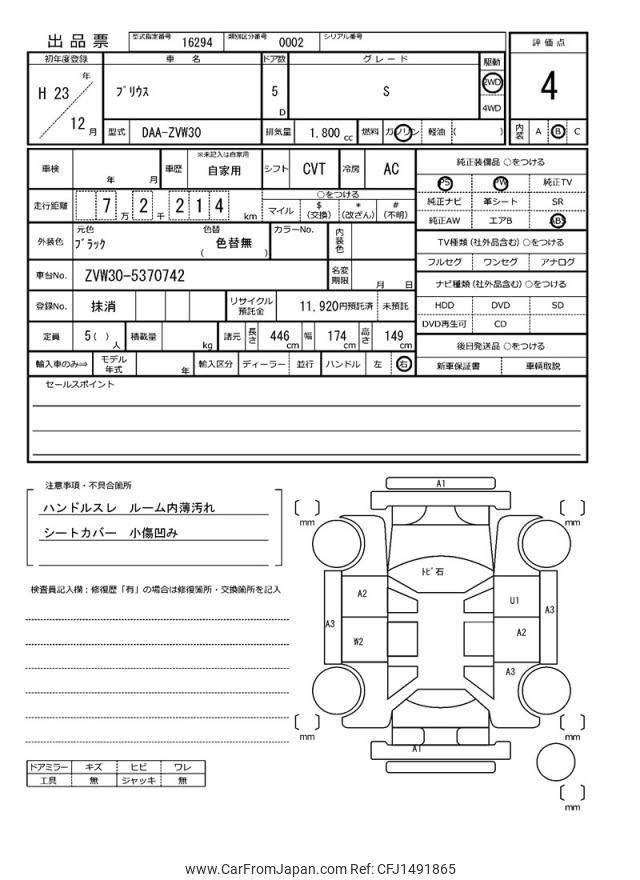 出品票 型式指定番号 16294 類別区分番号 0002 シリアル番号
評価点
4
内装 A B C
初年度登録 車名 ドア数 グレード 駆動
H 23 年 12 月
プリウス 5 D S 2WD 4WD
型式 DAA-ZVW30 排気量 1,800 cc 燃料 ガソリン 軽油 ( )
車検 年 月 車歴 ※未記入は自家用 自家用 シフト CVT 冷房 AC
走行距離 7 万 2 千 2 1 4 km
○をつける
マイル $(交換) *(改ざん) #(不明)
外装色 元色 ブラック 色替 色替無 ( ) カラーNo. 内装色
車台No. ZVW30-5370742 名変期限 月 日
登録No. 抹消 リサイクル預託金 11,920円預託済 未預託
定員 5( )人 積載量 kg 諸元 長さ 446 cm 幅 174 cm 高さ 149 cm
輸入車のみ⇒ モデル年式 年 輸入区分 ディーラー 並行 ハンドル 左 右
純正装備品 ○をつける
PS PW 純正TV
純正ナビ 革シート SR
純正AW エアB ABS
TV種類(社外品含む)○をつける
フルセグ ワンセグ アナログ
ナビ種類(社外品含む)○をつける
HDD DVD SD
DVD再生可 CD
後日発送品 ○をつける
新車保証書 車輌取説
セールスポイント
注意事項・不具合箇所
ハンドルスレ ルーム内薄汚れ
シートカバー 小傷凹み
検査員記入欄:修復歴「有」の場合は修復箇所・交換箇所を記入
ドアミラー キズ ヒビ ワレ
工具 無 ジャッキ 無
A1
mm
mm
トビ石
A2
U1
A3
A3
W2
A2
A3
mm
mm
A1
mm
www.CarFromJapan.com Ref: CFJ1491865